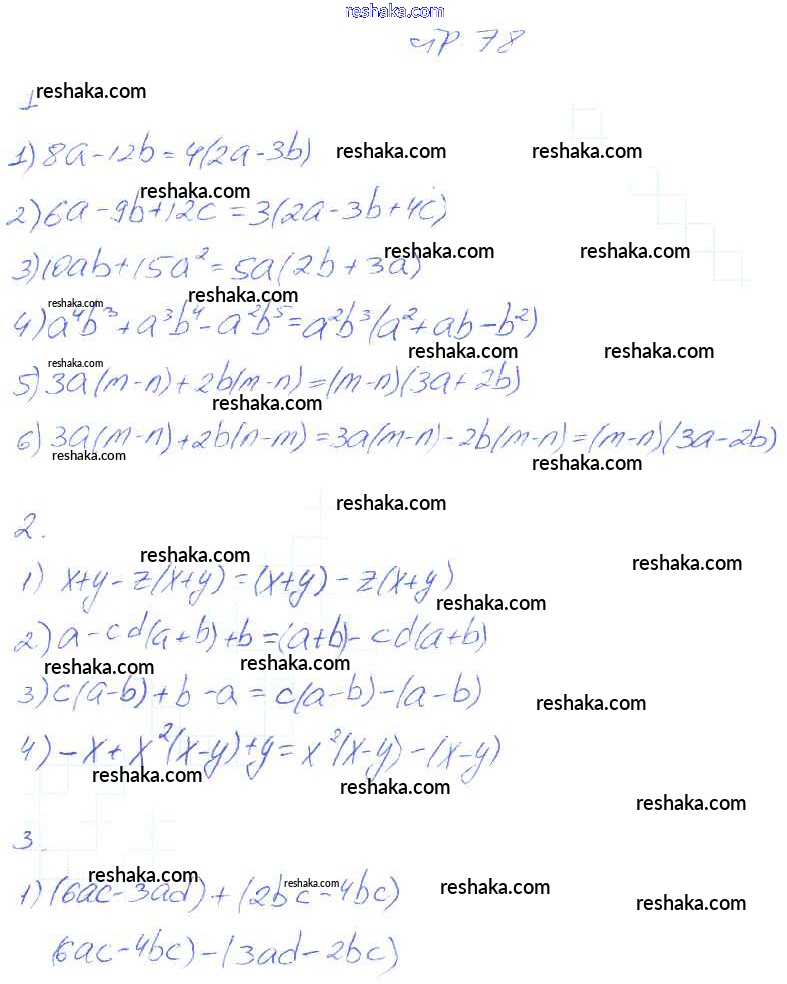 reshaka.com
стр 78
1 reshaka.com
1) 8a - 12b = 4(2a - 3b) reshaka.com reshaka.com
reshaka.com
2) 6a - 9b + 12c = 3(2a - 3b + 4c)
reshaka.com reshaka.com
3) 10ab + 15a² = 5a(2b + 3a)
reshaka.com reshaka.com
4) a⁴b³ + a³b⁴ - a²b⁵ = a²b³(a² + ab - b²)
reshaka.com reshaka.com
reshaka.com
5) 3a(m-n) + 2b(m-n) = (m-n)(3a + 2b)
reshaka.com
6) 3a(m-n) + 2b(n-m) = 3a(m-n) - 2b(m-n) = (m-n)(3a - 2b)
reshaka.com reshaka.com
reshaka.com
2.
reshaka.com reshaka.com
1) x+y - z(x+y) = (x+y) - z(x+y)
reshaka.com
2) a - cd(a+b) + b = (a+b) - cd(a+b)
reshaka.com reshaka.com
3) c(a-b) + b - a = c(a-b) - (a-b)
reshaka.com
4) -x + x²(x-y) + y = x²(x-y) - (x-y)
reshaka.com reshaka.com
reshaka.com
3.
reshaka.com
1) (6ac - 3ad) + (2bc - 4bc)
reshaka.com reshaka.com reshaka.com
(6ac - 4bc) - (3ad - 2bc)